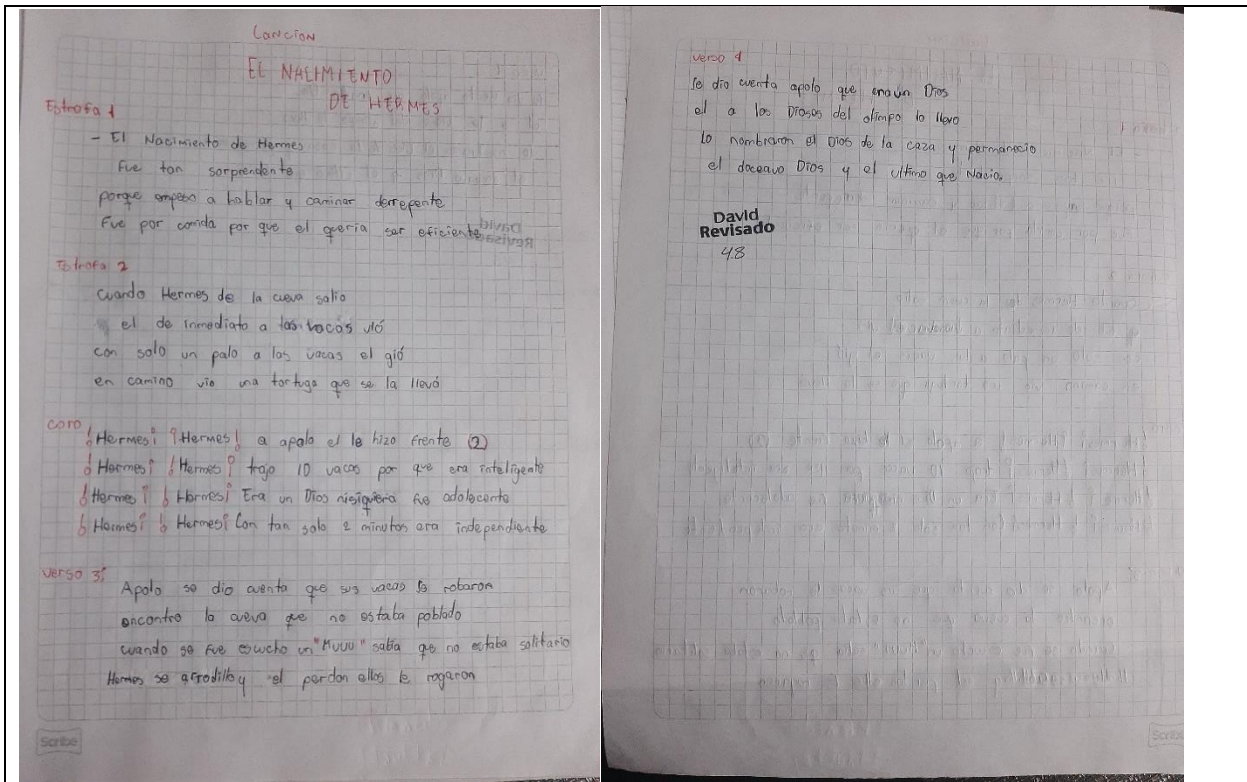 Cancion
EL NACIMIENTO
DE HERMES
Estrofa 1
- El Nacimiento de Hermes
Fue tan sorprendente
porque empeso a hablar y caminar derrepente
Fue por comida por que el queria ser eficiente
Estrofa 2
cuando Hermes de la cueva salio
el de inmediato a las vacas vió
con solo un palo a las vacas el gió
en camino vio una tortuga que se la llevó
coro
¡Hermes! ¡Hermes! a apolo el le hizo frente (2)
¡Hermes! ¡Hermes! trajo 10 vacas por que era inteligente
¡Hermes! ¡Hermes! Era un Dios nisiquiera fue adolecente
¡Hermes! ¡Hermes! Con tan solo 2 minutos era independiente
verso 3:
Apolo se dio cuenta que sus vacas se robaron
encontro la cueva que no estaba poblado
cuando se fue escucho un "Muuu" sabia que no estaba solitario
Hermes se arrodillo y el perdon ellos le rogaron
Scribe
verso 4
Se dio cuenta apolo que era un Dios
el a los Diosos del olimpo lo llevo
Lo nombraron el Dios de la caza y permanecio
el doceavo Dios y el ultimo que Nacio.
David
Revisado
48